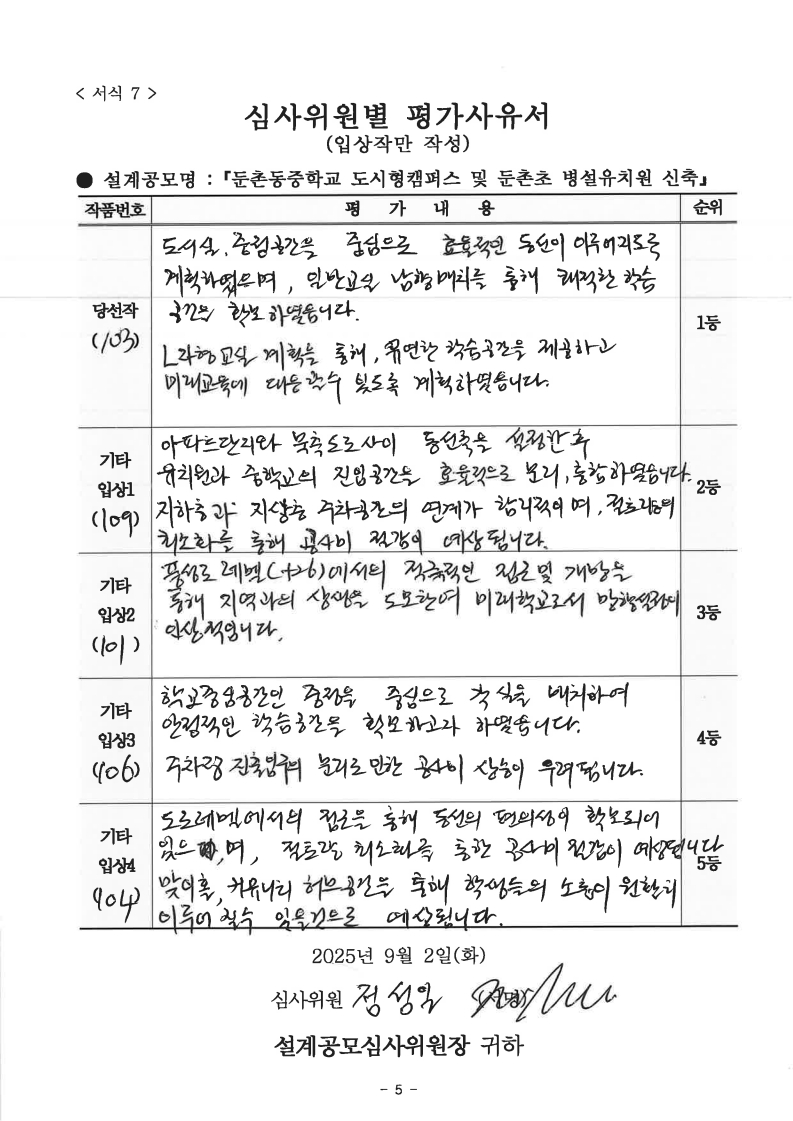 < 서식 7 >
심사위원별 평가사유서
(입상작만 작성)
● 설계공모명 : 『둔촌동중학교 도시형캠퍼스 및 둔촌초 병설유치원 신축』
작품번호 평 가 내 용 순위
당선작
(103)
도서실, 중정공간을 중심으로 효율적인 동선이 이루어지도록
계획하였으며, 일반교실 남향배치를 통해 쾌적한 학습
공간을 확보하였습니다.
L자형교실 계획을 통해, 유연한 학습공간을 제공하고
미래교육에 대응할수 있도록 계획하였습니다.
1등
기타
입상1
(109)
아파트단지와 북측도로사이 동선축을 설정한후
유치원과 중학교의 진입공간을 효율적으로 분리, 통합하였습니다.
지하층과 지상층 주차공간의 연계가 합리적이며, 절토량의
최소화를 통해 공사비 절감이 예상됩니다.
2등
기타
입상2
(101)
풍성로 레벨(+26)에서의 적극적인 접근및 개방을
통해 지역과의 상생을 도모한여 미래학교로서
인상적입니다.
3등
기타
입상3
(106)
학교중앙공간인 중정을 중심으로 각 실을 배치하여
안정적인 학습공간을 확보하고자 하였습니다.
주차량 진출입구의 분리로인한 공사비 상승이 우려됩니다.
4등
기타
입상4
(104)
도로레벨에서의 접근을 통해 동선의 편의성이 확보되어
있으며, 절토량 최소화를 통한 공사비 절감이 예상됩니다
맞이홀, 커뮤니티 허브공간을 통해 학생들의 소통이 원활히
이루어 질수 있을것으로 예상됩니다.
5등
2025년 9월 2일(화)
심사위원 정성일 (서명)
설계공모심사위원장 귀하
- 5 -